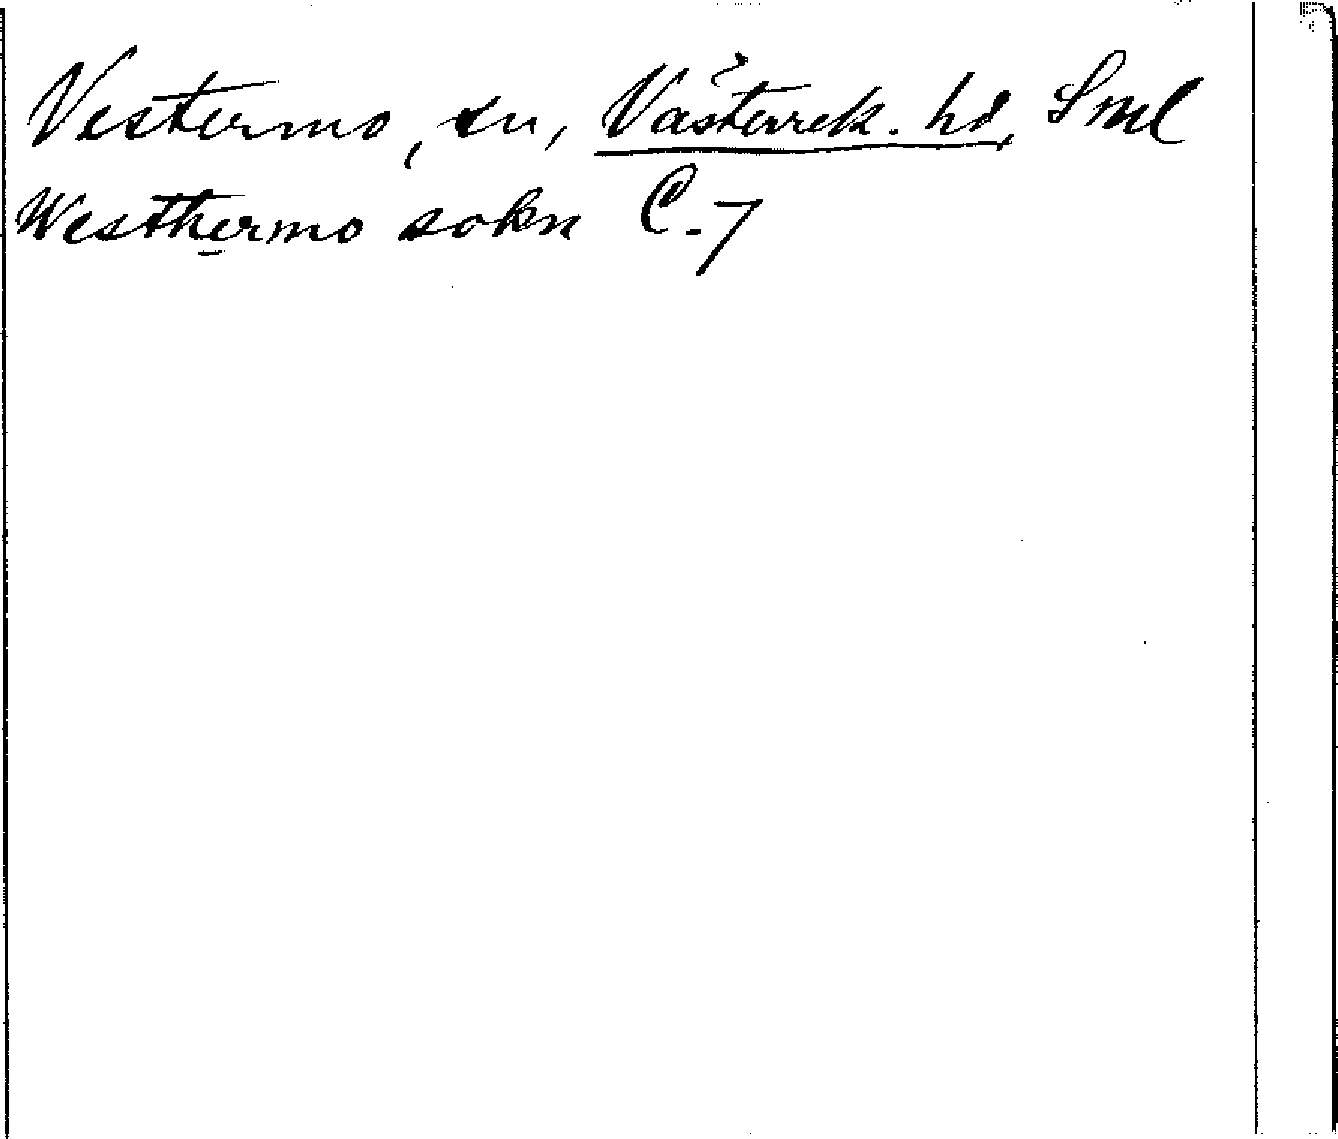 Vestermo, sn, Västerrek. hd, Sml
Westhermo sokn C.7